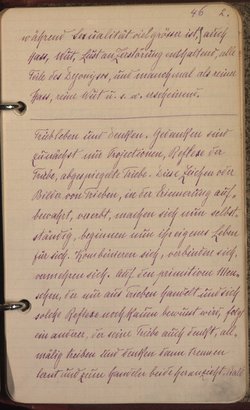 46 2.
während Sexualität viel grösser ist) auch
Hass, Wut, Lust an Zerstörung enthaltend, alle
Teile des Dyonysos, und manchmal als reiner
Hass, reine Wut u. s. w. erscheinend.
Triebleben und denken. Gedanken sind
zunächst nur Projectionen, Reflexe der
Triebe, abgespiegelte Triebe. Diese Zeichen oder
Bilder von Trieben, in der Erinnerung auf-
bewahrt, vererbt, machen sich nun selbst-
ständig, beginnen nun ihr eigenes Leben
für sich. Kombinieren sich, verbinden sich,
vermehren sich. Auf den primitiven Men-
schen, der nur aus Trieben handelt und sich
solche Reflexe noch kaum bewusst wird, folgt
ein anderer, der seine Triebe auch denkt, all-
mälig treiben und denken dann trennen
lernt und zum Handeln beide heranzieht. Bald